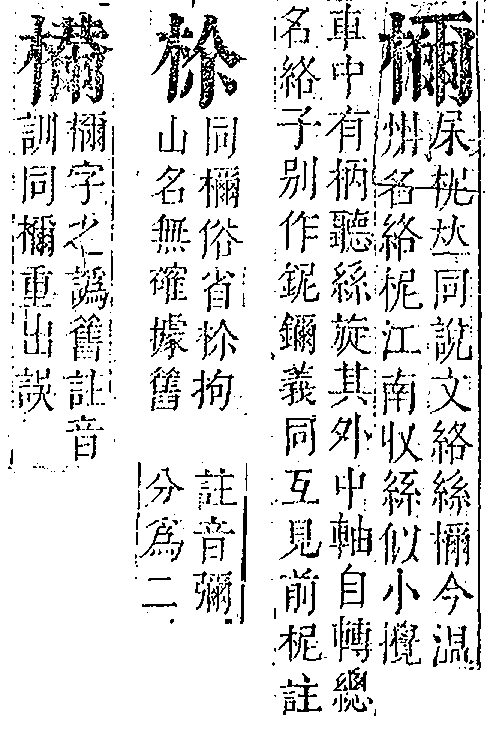 檷
杘柅𠀤同說文絡絲檷今温
州名絡柅江南收絲似小攪
車中有柄聽絲旋其外中軸自轉總
名絡子别作鈮鑈義同互見前柅註
同檷俗省拘
山名無確據舊
註音彌
分爲二
檷字之譌舊註音
訓同檷重出誤